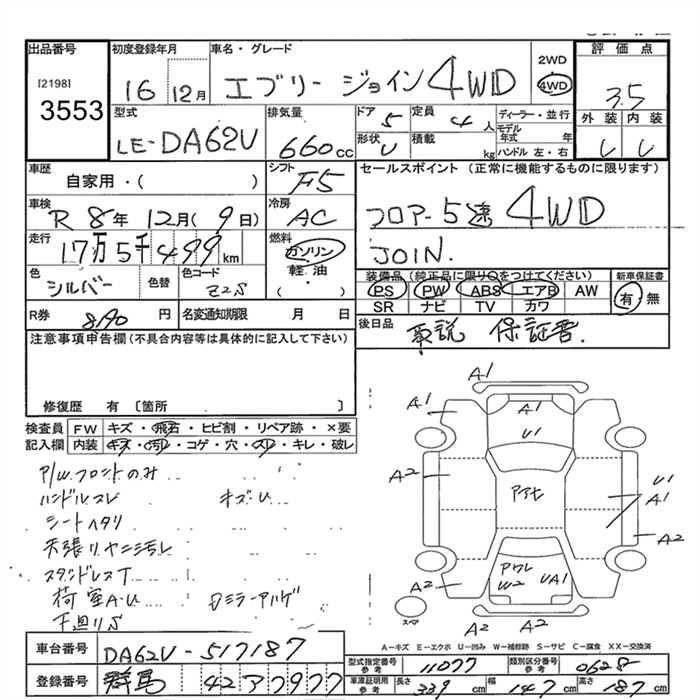 出品番号 初度登録年月 車名・グレード 2WD 評価点
[2198] 16 12月 エブリー ジョイン 4WD 4WD 3.5
3553 型式 排気量 ドア 5 定員 4人 ディーラー・並行 外装 内装
LE-DA62V 660cc 形状 V 積載 kg モデル年式 年 ハンドル 左・右
車歴 シフト セールスポイント (正常に機能するものに限ります)
自家用・( ) F5
車検 冷房 フロアー5速 4WD
R 8年 12月( 9日) AC JOIN.
走行 燃料
17万5千499km ガソリン
色 色替 色コード 軽油 装備品(純正品に限り○をつけてください) 新車保証書
シルバー Z2S ( ・ ) PS PW ABS エアB AW 有・無
SR ナビ TV カワ
R券 8190円 名変通知期限 月 日 後日品
取説 保証書.
注意事項申告欄(不具合内容等は具体的に記入して下さい)
修復歴 有 〔箇所 〕
検査員 FW キズ・飛石・ヒビ割・リペア跡・×要
記入欄 内装 キズ・汚れ・コゲ・穴・スリ・キレ・破レ
P/Wフロントのみ
ハンドルスレ キズU
シートヘタリ
天張リヤニ汚レ
荷室A・U
下廻りS
A1
A1 A1 A1
U1
A2 U1
A1
A2
W2 UA1
A2 A2
A2 A2
スペア
A-キズ E-エクボ U-凹み W-補修跡 S-サビ C-腐食 XX-交換済
車台番号 DA62V-517187
型式指定番号 参考 11077 類別区分番号 参考 0628
登録番号 群馬 42 ア 7977
車庫証明用 参考 長さ 339cm 幅 147cm 高さ 187cm